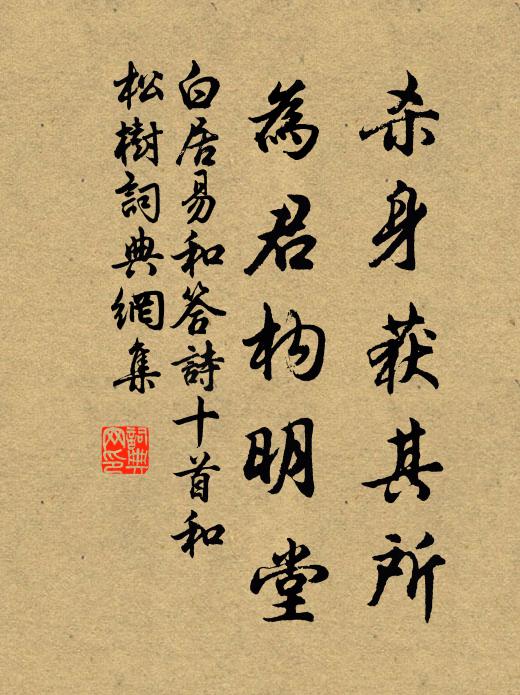 杀身获其所
為君构明堂
白居易和答詩十首和
松樹詞典網集
詞典
网印